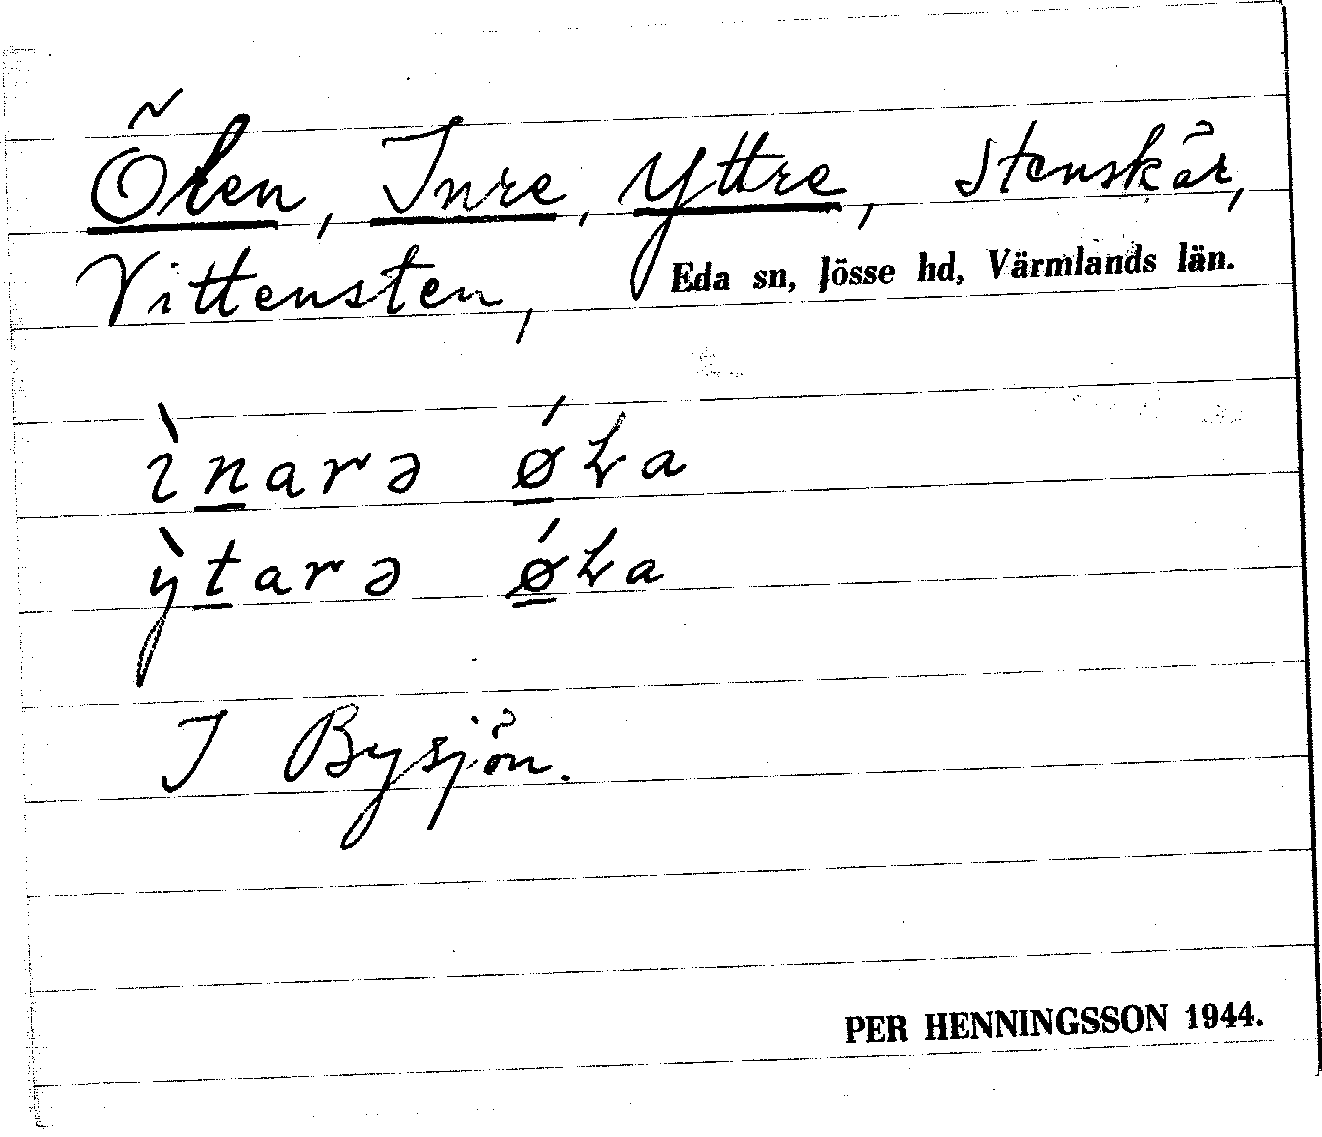 Ölen, Inre, Yttre, Stenskär,
Vittensten, Eda sn, Jösse hd, Värmlands län.
ìnarə ǿLa
ỳtarə ǿLa
I Bysjön.
PER HENNINGSSON 1944.